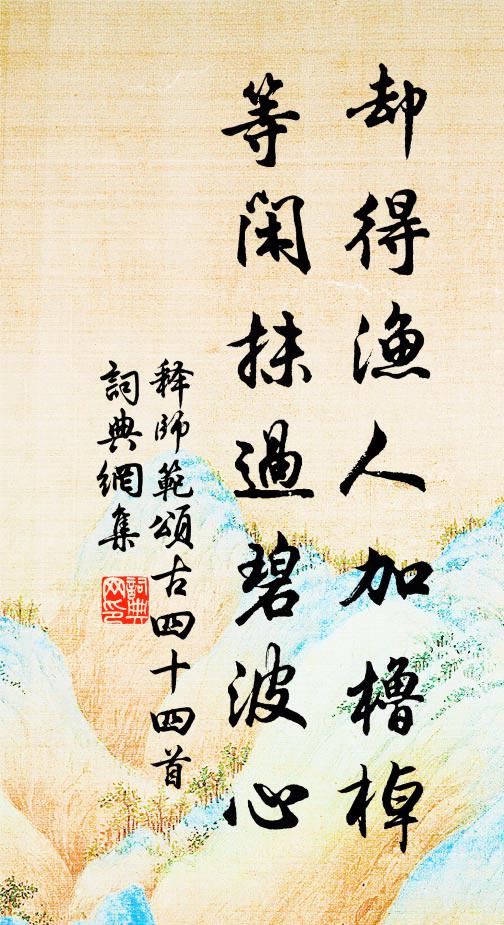 却得渔人加橹棹
等闲抹过碧波心
释师范颂古四十四首
詞典網集
詞典網印